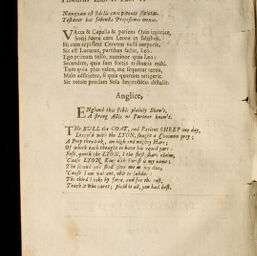 Nunquam est fidelis cum potente societas.
Testatur hæc fabella Propositum meum.
VAcca & Capella & patiens Ovis injuriæ,
Socii fuere cum Leone in saltibus.
Hi cum cepissent Cervum vasti corporis,
Sic est Locutus, partibus factis, Leo.
Ego primam tollo, nominor quia Leo;
Secundam, quia sum fortis tribuetis mihi.
Tum quia plus valeo, me sequetur tertia.
Malo adficietur, si quis quartam tetigerit.
Sic totam prædam sola Improbitas abstulit.
Anglice,
ENgland this fable plainly Show's,
A strong Allie no Partner know's.
THe BULL the GOAT, and Patient SHEEP one day,
Leagu'd with the LYON, sought a Common prey:
A Prey they took, an high and mighty Hart;
Of which each thought to have his equal part:
Soft, quoth the LYON, I the first share claim,
'Cause LYON, King is my name;
The second you shall give me as my due,
'Cause I am valiant,
The third I take by force, and for the rest,
Touch it who dares; yield it all, you had best.